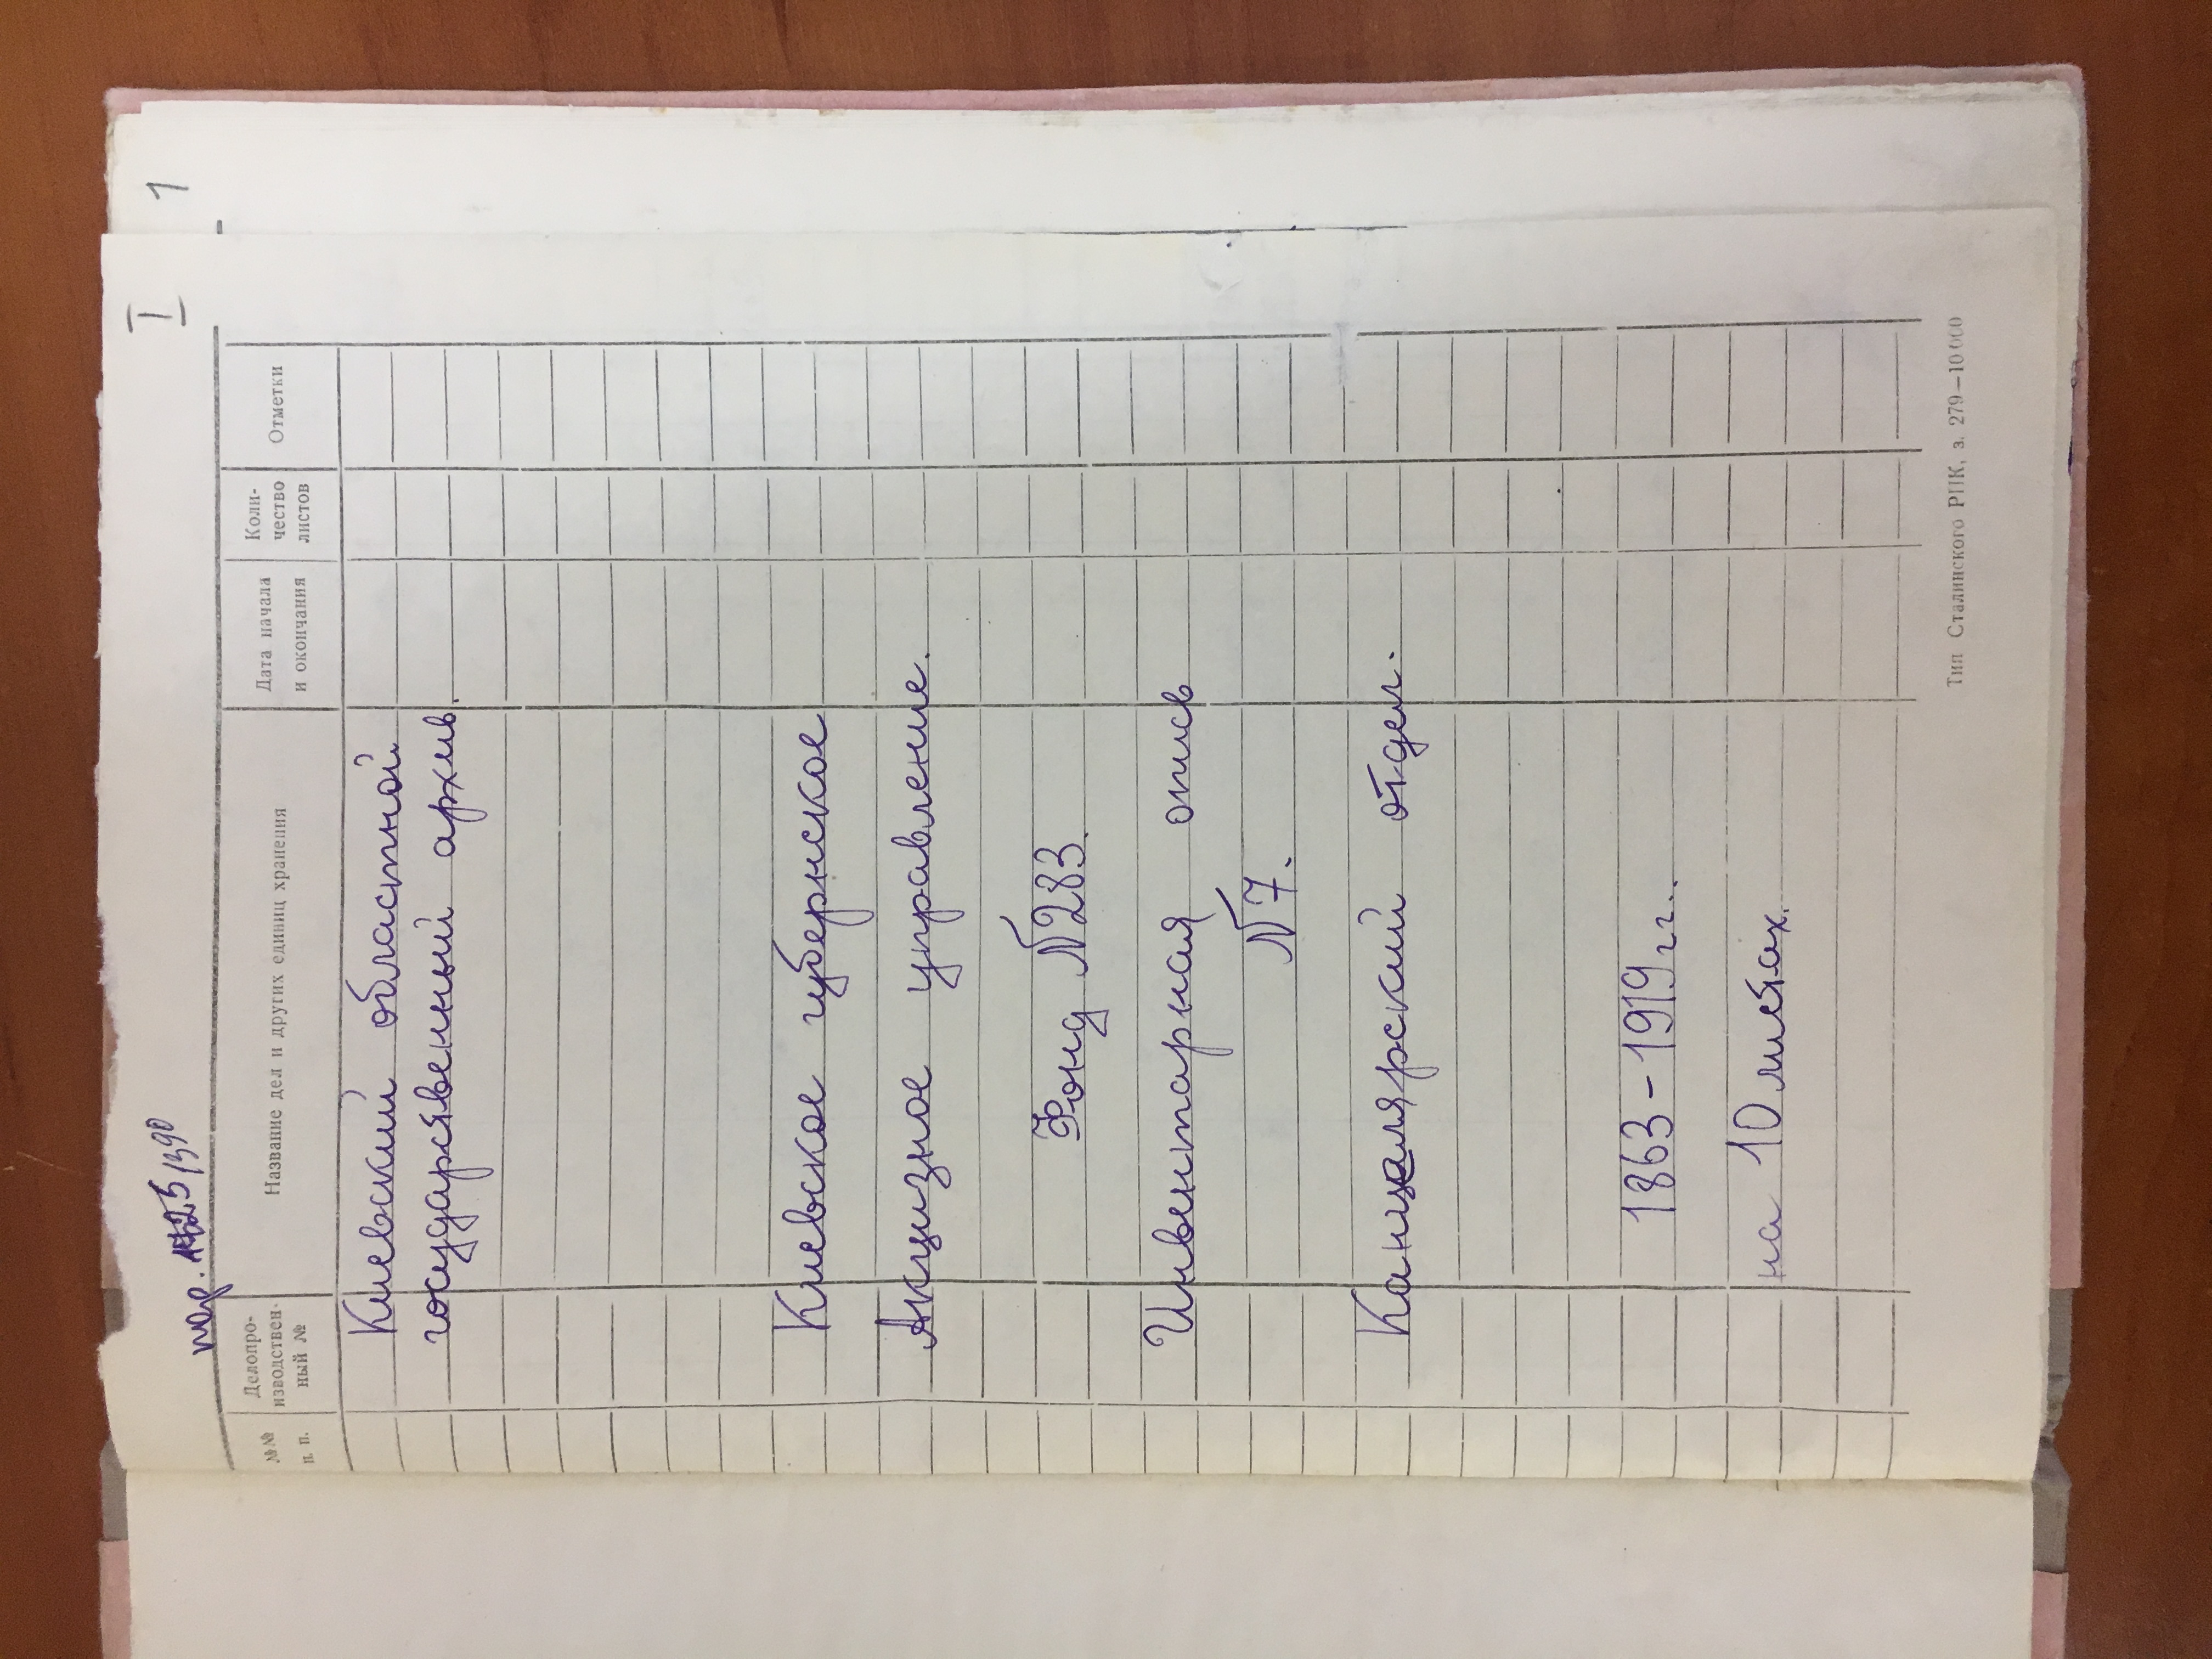 I
1
№№ п. п.
Делопро-
изводствен-
ный №
Название дел и других единиц хранения
Дата начала
и окончания
Коли-
чество
листов
Отметки
Киевский областной
государственный архив.
Киевское губернское
Акцизное управление.
Фонд №283.
Инвентарная опись
№7.
Канцелярский отдел.
1863-1919 гг.
на 10 листах.
Тип Сталинского РПК, з. 279—10000